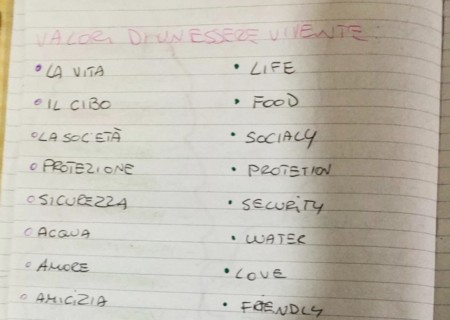 VALORI DI UN ESSERE VIVENTE:
• LA VITA • LIFE
• IL CIBO • FOOD
• LA SOCETÀ • SOCIALY
• PROTEZIONE • PROTETION
• SICUREZZA • SECURITY
• ACQUA • WATER
• AMORE • LOVE
• AMICIZIA • FRIENDLY